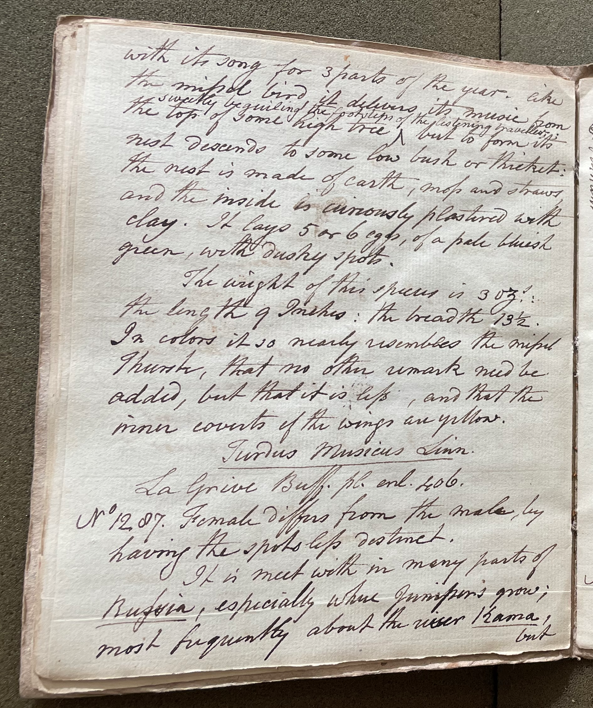 with its song for 3 parts of the year. Like
the missel bird it delivers its music from
sweetly beguiling the footsteps of the listening traveller:
the top of some high tree ^ but to form its
nest descends to some low bush or thicket:
the nest is made of earth, moss and straws
and the inside is curiously plastured with
clay. It lays 5 or 6 eggs, of a pale bluish
green, with dusky spots.
The weight of this species is 3 oz:
the length 9 Inches: the breadth 13½.
In colors it so nearly resembles the missel
Thrush, that no other remark need be
added, but that it is less, and that the
inner coverts of the wings are yellow.
Turdus Musicus Linn.
La Grive Buff. pl. enl. 406.
No 1287. Female differs from the male, by
having the spots less distinct.
It is meet with in many parts of
Russia, especially where Junipers grow;
most frequently about the river Kama,
but